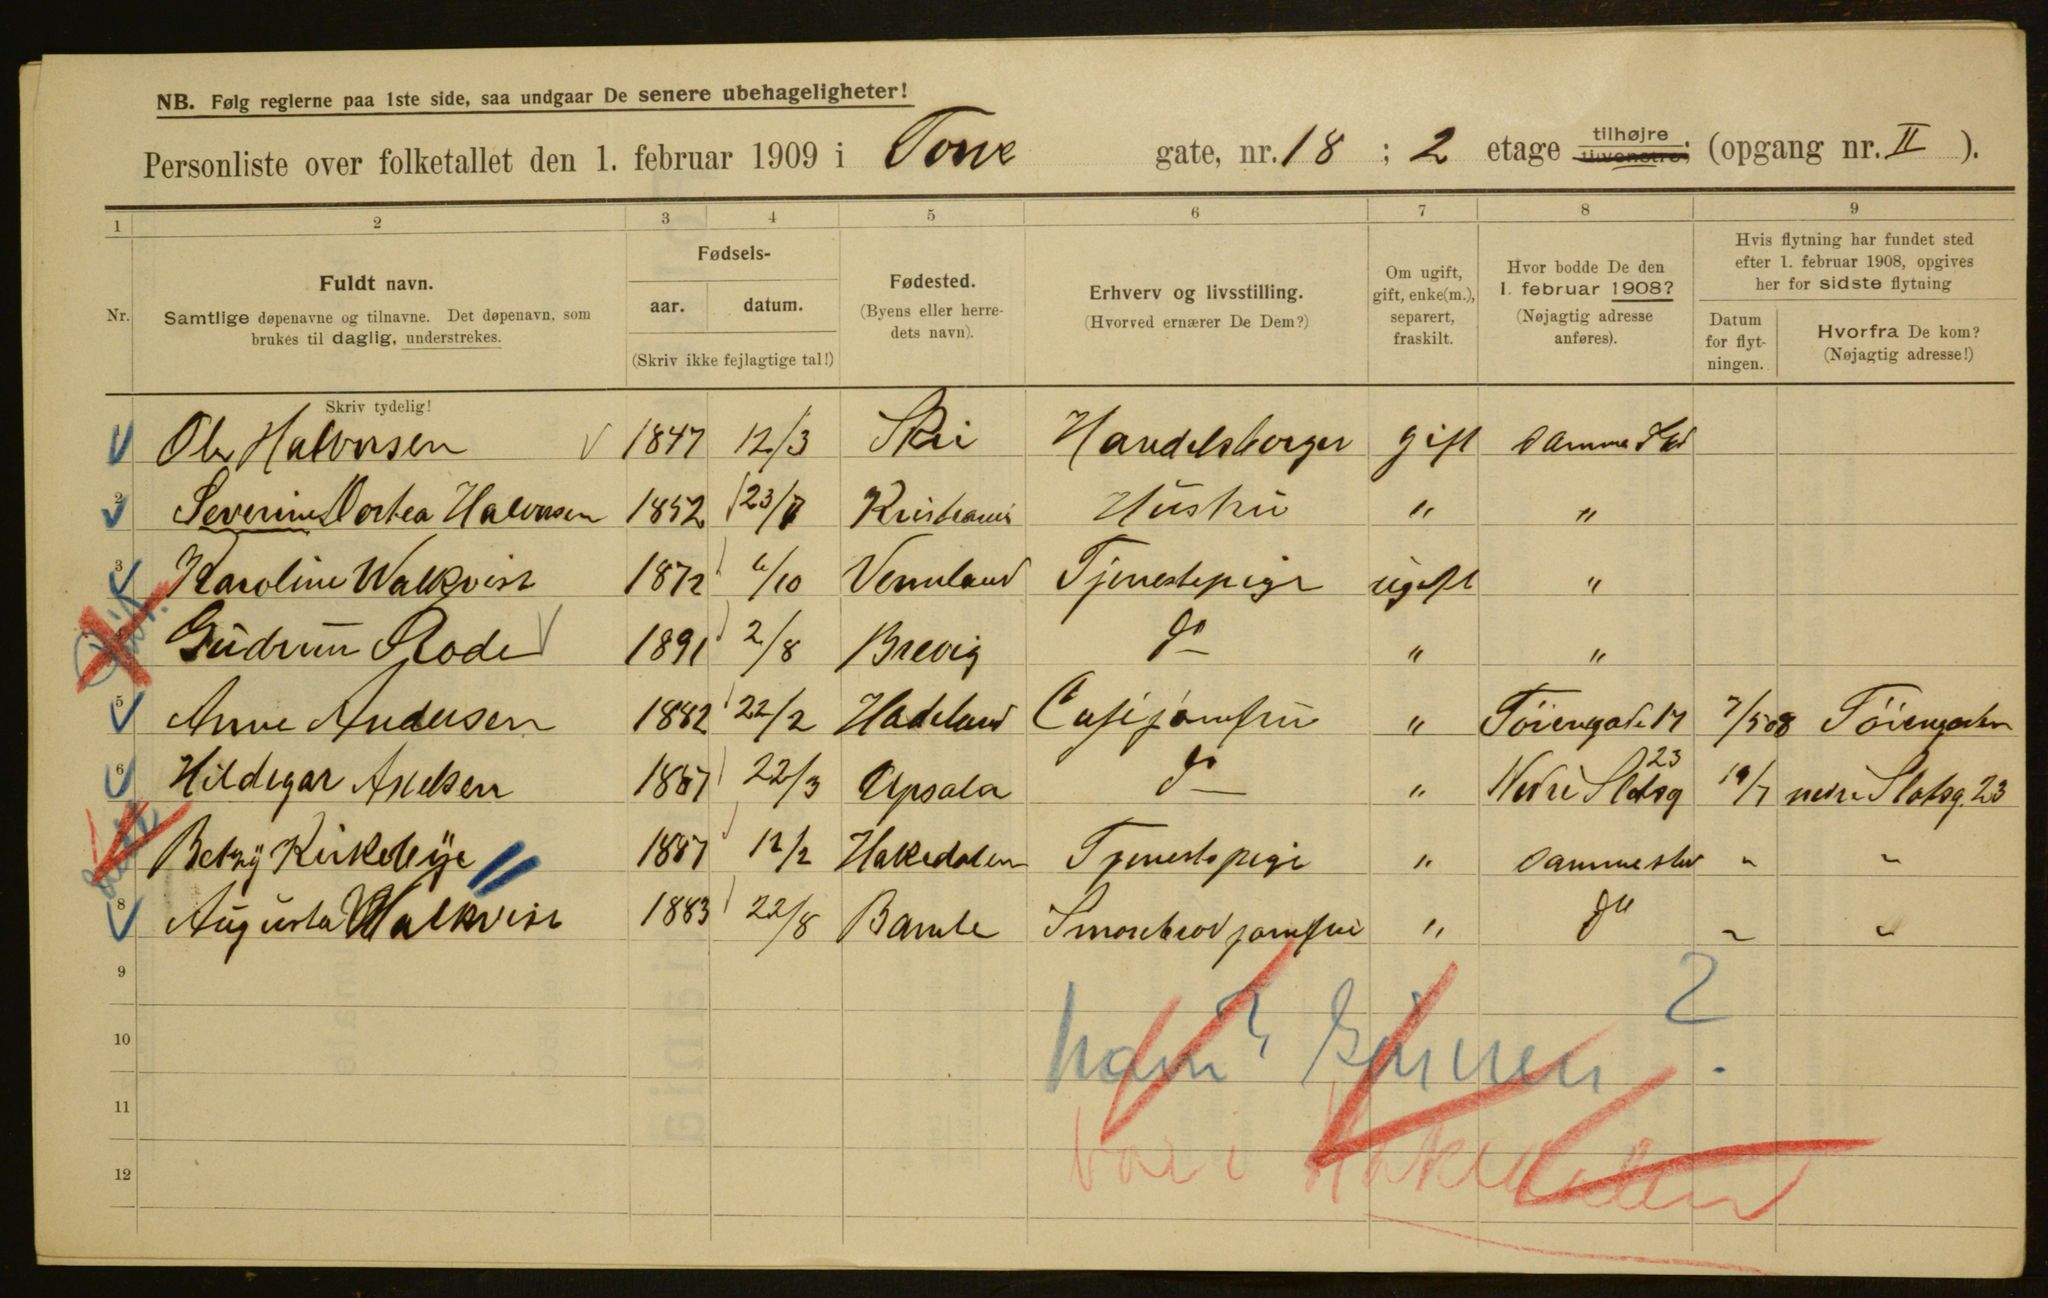 NB. Følg reglerne paa 1ste side, saa undgaar De senere ubehageligheter!
Personliste over folketallet den 1. februar 1909 i Torv gate, nr. 18 ; 2 etage tilhøjre tilvenstre; (opgang nr. II ).
1 2 3 4 5 6 7 8 9
Nr.
Fuldt navn.
Samtlige døpenavne og tilnavne. Det døpenavn, som
brukes til daglig, understrekes.
Skriv tydelig!
Fødsels-
aar. datum.
(Skriv ikke fejlagtige tal!)
Fødested.
(Byens eller herre-
dets navn).
Erhverv og livsstilling.
(Hvorved ernærer De Dem?)
Om ugift,
gift, enke(m.),
separert,
fraskilt.
Hvor bodde De den
1. februar 1908?
(Nøjagtig adresse
anføres).
Hvis flytning har fundet sted
efter 1. februar 1908, opgives
her for sidste flytning
Datum
for flyt-
ningen.
Hvorfra De kom?
(Nøjagtig adresse!)
Ole Halvorsen 1847 12/3 Ski Handelsborger gift samme Sted
2 Severine Dortea Halvorsen 1852 23/7 Kristiania Hustru " "
3 Karoline Walkvist 1872 6/10 Vermland Tjenestepige ugift "
Gudrun Rode 1891 2/8 Brevig do " "
5 Anne Andersen 1882 22/2 Hadeland Cafejomfru " Töiengade 17 7/5 08 Töiengaden
6 Hildegar Axelsen 1887 22/3 Upsala do " Nedre Slotsg 23 19/7 nedre Slotsg. 23
Betzy Kirkebye 1887 12/2 Hakedalen Tjenestepige " sammested " "
8 Augusta Walkvist 1883 22/8 Bamle Smørebrød jomfru " do " "
9
10
11
12
Hakedalen